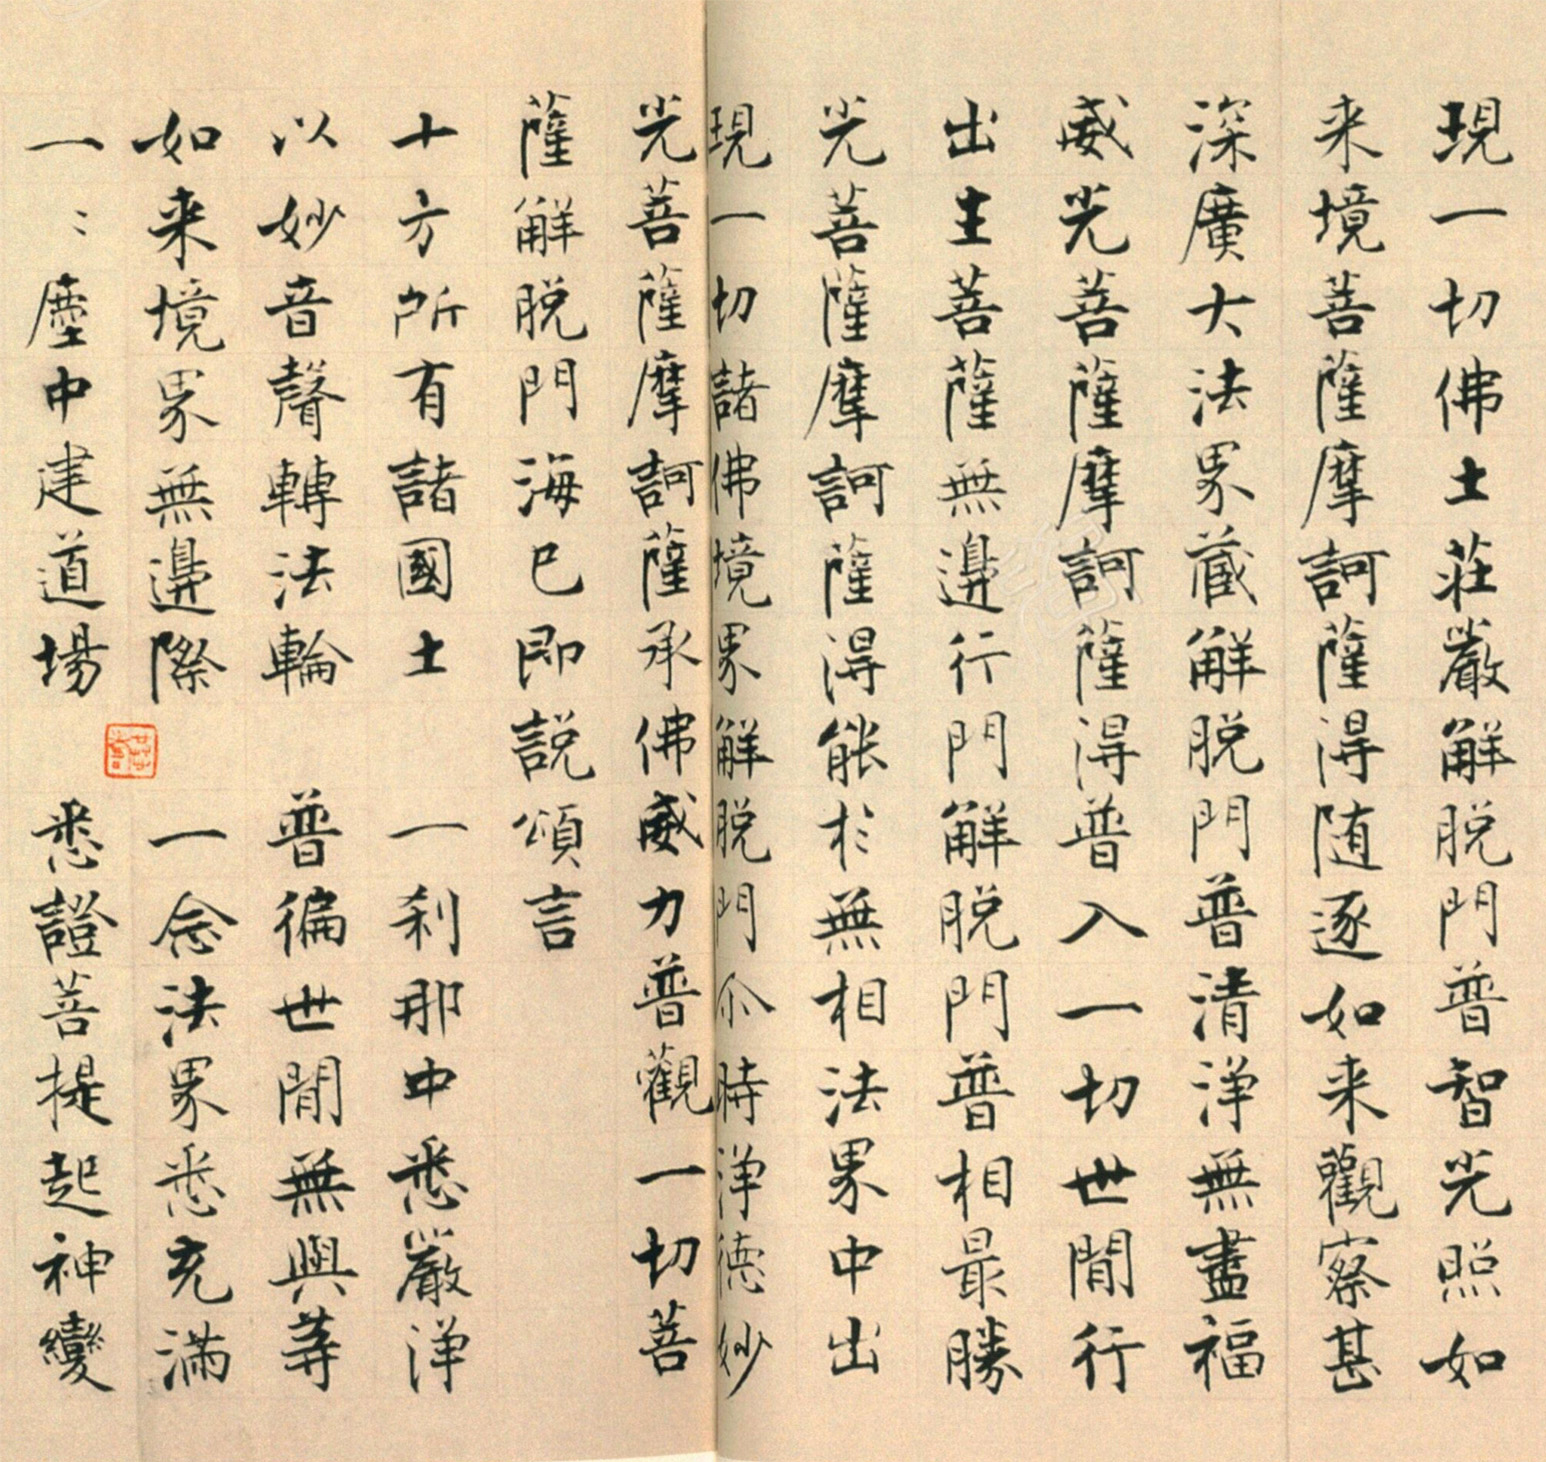 現一切佛土莊嚴解脫門普智光照如
来境菩薩摩訶薩淂随逐如来觀察甚
深廣大法界蔵解脫門普清淨無盡福
威光菩薩摩訶薩淂普入一切世間行
出生菩薩無邊行門解脫門普相最勝
光菩薩摩訶薩淂能於無相法界中出
現一切諸佛境界解脫門尒時淨德妙
光菩薩摩訶薩承佛威力普觀一切菩
薩解脫門海已即說頌言
十方所有諸國土 一刹那中悉嚴淨
以妙音聲轉法輪 普徧世間無與等
如来境界無邊際 一念法界悉充滿
一〻塵中建道場 悉證菩提起神變